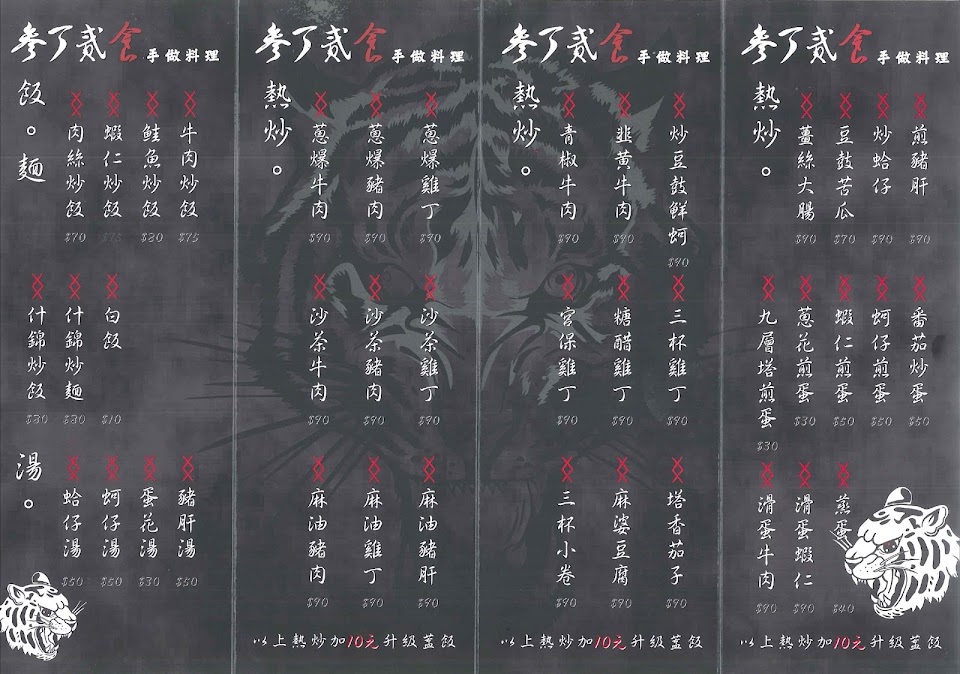 參了貳食 手做料理
飯。麵
牛肉炒飯 $75
鮭魚炒飯 $80
蝦仁炒飯 $75
肉絲炒飯 $70
白飯 $10
什錦炒麵 $80
什錦炒飯 $80
湯。
豬肝湯 $50
蛋花湯 $30
蚵仔湯 $50
蛤仔湯 $50
參了貳食 手做料理
熱炒。
蔥爆雞丁 $90
蔥爆豬肉 $90
蔥爆牛肉 $90
沙茶雞丁 $90
沙茶豬肉 $90
沙茶牛肉 $90
麻油豬肝 $90
麻油雞丁 $90
麻油豬肉 $90
以上熱炒加10元升級蓋飯
參了貳食 手做料理
熱炒。
炒豆鼓鮮蚵 $90
韭黃牛肉 $90
青椒牛肉 $90
三杯雞丁 $90
糖醋雞丁 $90
宮保雞丁 $90
塔香茄子 $90
麻婆豆腐 $90
三杯小卷 $90
以上熱炒加10元升級蓋飯
參了貳食 手做料理
熱炒。
煎豬肝 $90
炒蛤仔 $90
豆鼓苦瓜 $70
薑絲大腸 $90
番茄炒蛋 $50
蚵仔煎蛋 $50
蝦仁煎蛋 $50
蔥花煎蛋 $30
九層塔煎蛋 $30
煎蛋 $40
滑蛋蝦仁 $90
滑蛋牛肉 $90
以上熱炒加10元升級蓋飯